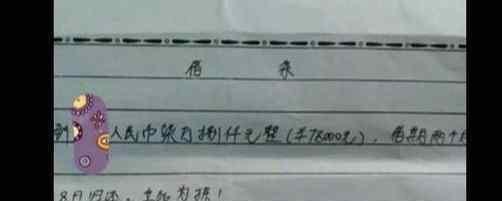 借 条
到 人民币柒万捌仟元整(¥78000元)，借期两个月
8月归还，立此为据！